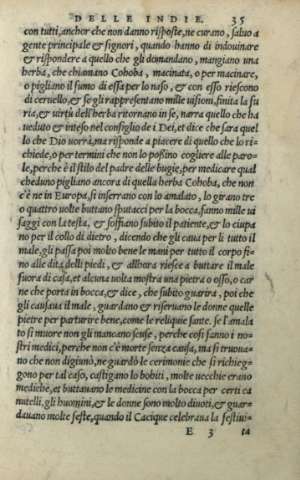 DELLE INDIE. 35
con tutti, anchor che non danno risposte, ne curano, saluo a
gente principale & signori, quando hanno di indouinare
& rispondere a quello che gli domandano, mangiano una
herba, che chiamano Cohoba, macinata, o per macinare,
o pigliano il fumo di essa per lo naso, & con esso riescono
di ceruello, & se gli rappresentano mille uisioni, finita la fu
ria, & uirtù dell'herba ritornano in se, narra quello che ha
ueduto & inteso nel consiglio de i Dei, et dice che sara quel
lo che Dio uorrà, ma risponde a piacere di quello che lo ri-
chiede, o per termini che non lo possino cogliere alle paro-
le, perche è il stilo del padre delle bugie, per medicare qual
cheduno pigliano ancora di quella herba Cohoba, che non
c'è ne in Europa, si inserrano con lo amalato, lo girano tre
o quattro uolte buttano sputacci per la bocca, fanno mille ui
saggi con la testa, & soffiano subito il patiente, & lo ciupa
no per il collo di dietro, dicendo che gli caua per li tutto il
male, gli passa poi molto bene le mani per tutto il corpo fi-
no alle dita delli piedi, & allhora riesce a buttare il male
fuora di casa, et alcuna uolta mostra una pietra o osso, o car
ne che porta in bocca, & dice, che subito guarirà, poi che
gli causaua il male, guardano & riseruano le donne quelle
pietre per parturire bene, come le reliquie sante. Se l'amala
to si muore non gli mancano scuse, perche cosi fanno i no-
stri medici, perche non c'è morte senza causa, ma si truoua-
no che non digiunò, ne guardò le cerimonie che si richieg-
gono per tal caso, castigano lo bohiti, molte uecchie erano
mediche, et buttauano le medicine con la bocca per certi ca
nutelli, gli huomini, & le donne sono molto diuoti, & guar-
dauano molte feste, quando il Cacique celebraua la festiui-
E 3 ta